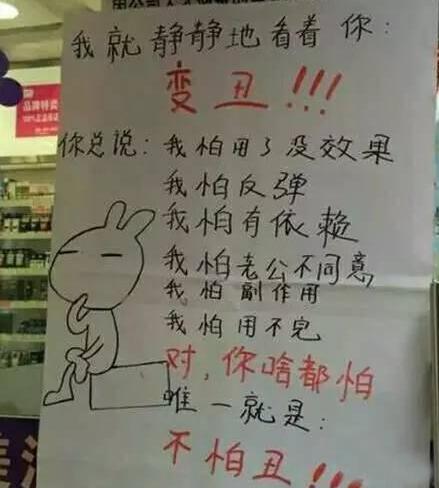 我就静静地看着你：
变丑！！！
你总说：我怕用了没效果
我怕反弹
我怕有依赖
我怕老公不同意
我怕副作用
我怕用不完
对，你啥都怕
唯一就是：
不怕丑！！！
品牌特卖